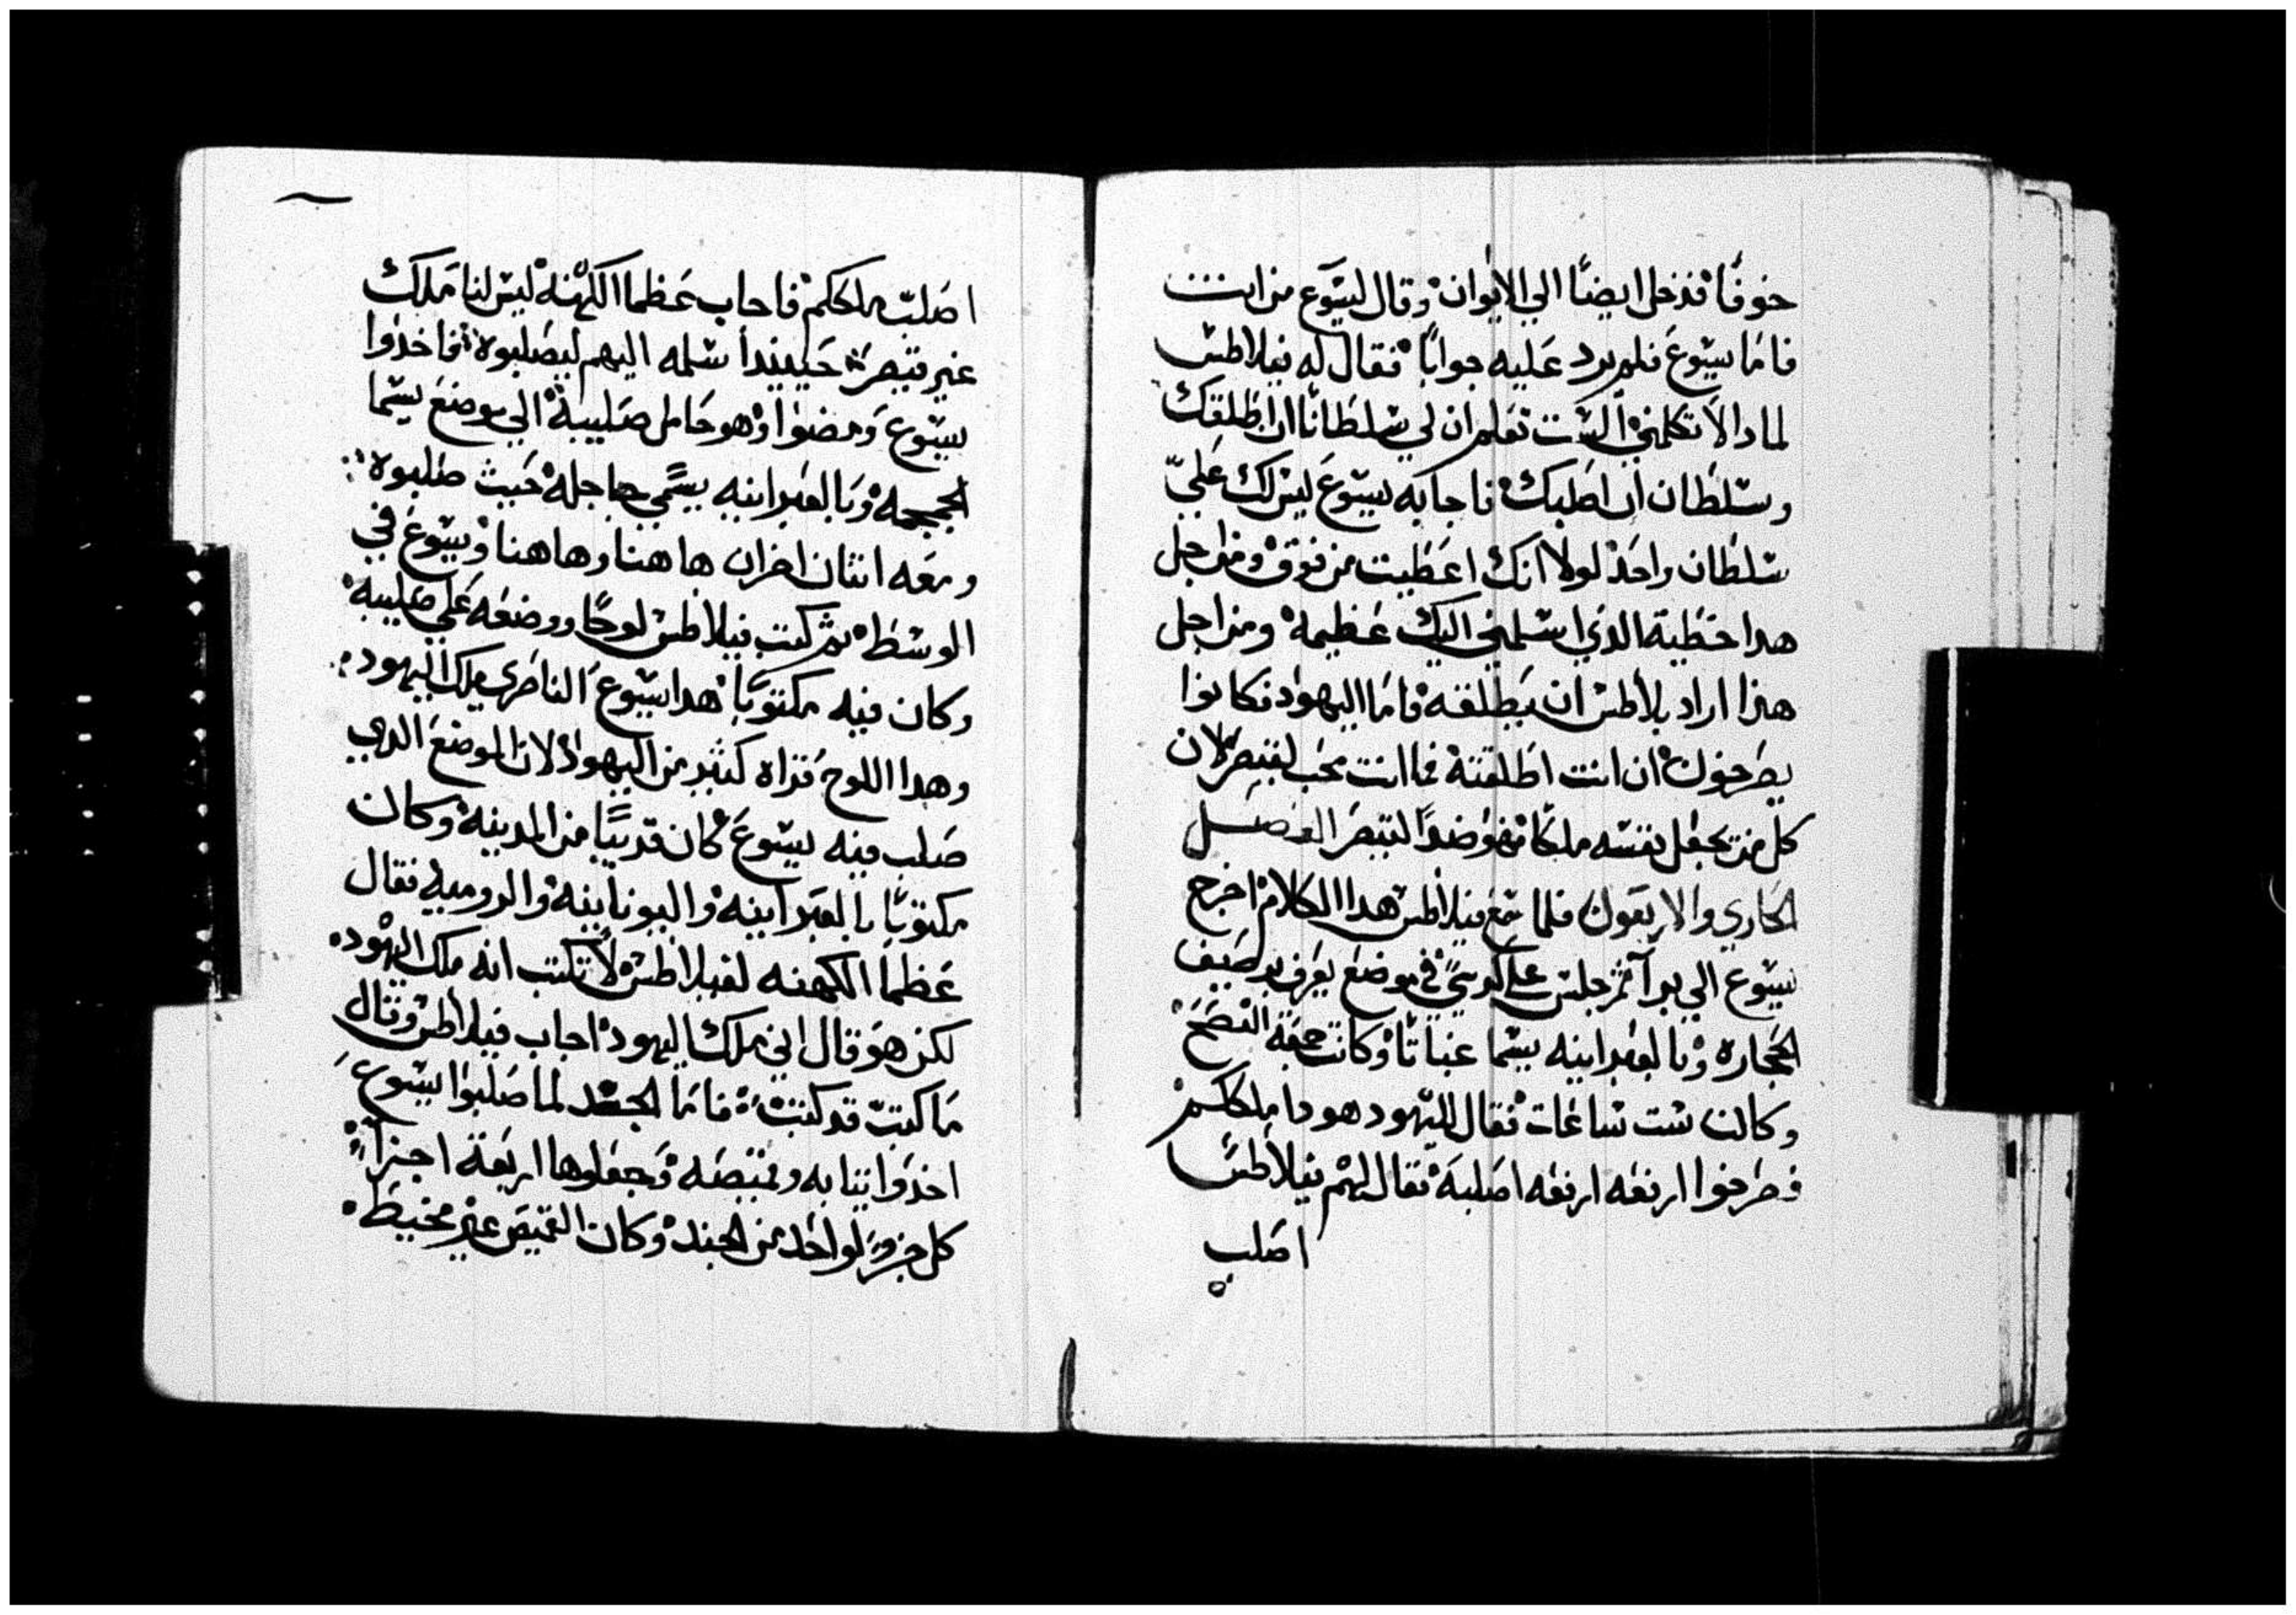 خوفًا فدخل ايضًا الي الايوان وقال ليسوع من انت
فاما يسوع فلم يرد عليه جوابًا فقال له فيلاطس
لمادا لا تكلمني الست تعلم ان لي سلطانًا ان اطلقك
وسلطان ان اصلبك فاجابه يسوع ليس لك عليّ
سلطان واحد لولا انك اعطيت من فوق ومن اجل
هدا خطية الدي اسلمني اليك عظيمة ومن اجل
هذا اراد بلاطس ان يطلقه فاما اليهود فكانوا
يصرخون ان انت اطلقته فما انت محب لقيصر لان
كل من يجعل نفسه ملكًا فهو ضدًا لقيصر الفصل
الحادي والاربعون فلما سمع فيلاطس هدا الكلام اخرج
يسوع الي برا ثم جلس علي كرسي في موضع يعرف برصيف
الحجارة وبالعبرانيه يسما غباتا وكانت جمعة الفصح
وكانت ست ساعات فقال لليهود هودا ملككم
فصرخوا ارفعه ارفعه اصلبه فقال لهم فيلاطس
اصلب
اصلب ملككم فاجاب عظما الكهنه ليس لنا ملك
غير قيصر حينيدا سلمه اليهم ليصلبوه فاخدوا
يسوع ومضوا وهو حامل صليبه الي موضع يسما
الجمجمه وبالعبرانيه يسمي جاجله حيث صلبوه
ومعه اتنان اخران هاهنا وهاهنا ويسوع في
الوسط ثم كتب فيلاطس لوحًا ووضعه علي صليبه
وكان فيه مكتوبًا هدا يسوع الناصري ملك اليهود
وهدا اللوح قراه كثير من اليهود لان الموضع الدي
صلب فيه يسوع كان قريبًا من المدينه وكان
مكتوبًا بالعبرانيه واليونانيه والروميه فقال
عظما الكهنه لفيلاطس لا تكتب انه ملك اليهود
لكن هو قال اني ملك اليهود اجاب فيلاطس وقال
ما كتبت قد كتبت فاما الجند لما صلبوا يسوع
اخدوا تيابه وقميصه وجعلوها اربعة اجزا
كل جزو لواحد من الجند وكان القميص غير مخيط